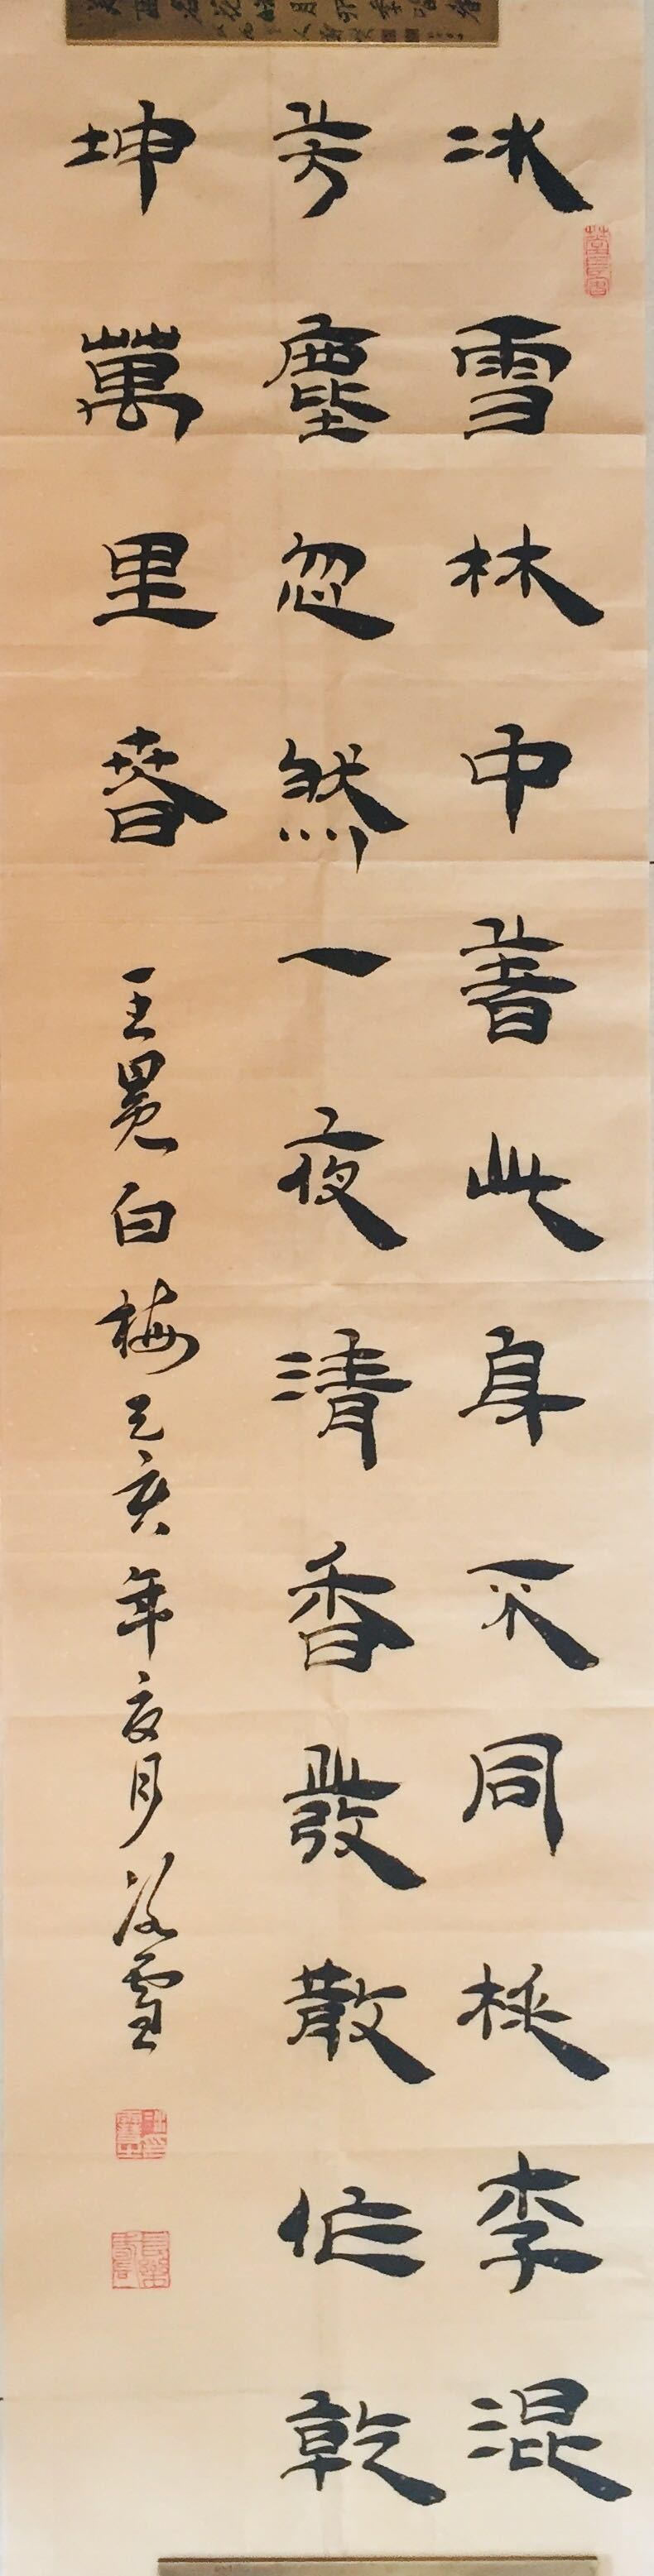 冰雪林中著此身不同桃李混
芳塵忽然一夜清香發散作乾
坤萬里春
王冕白梅己亥年夜月凌雪